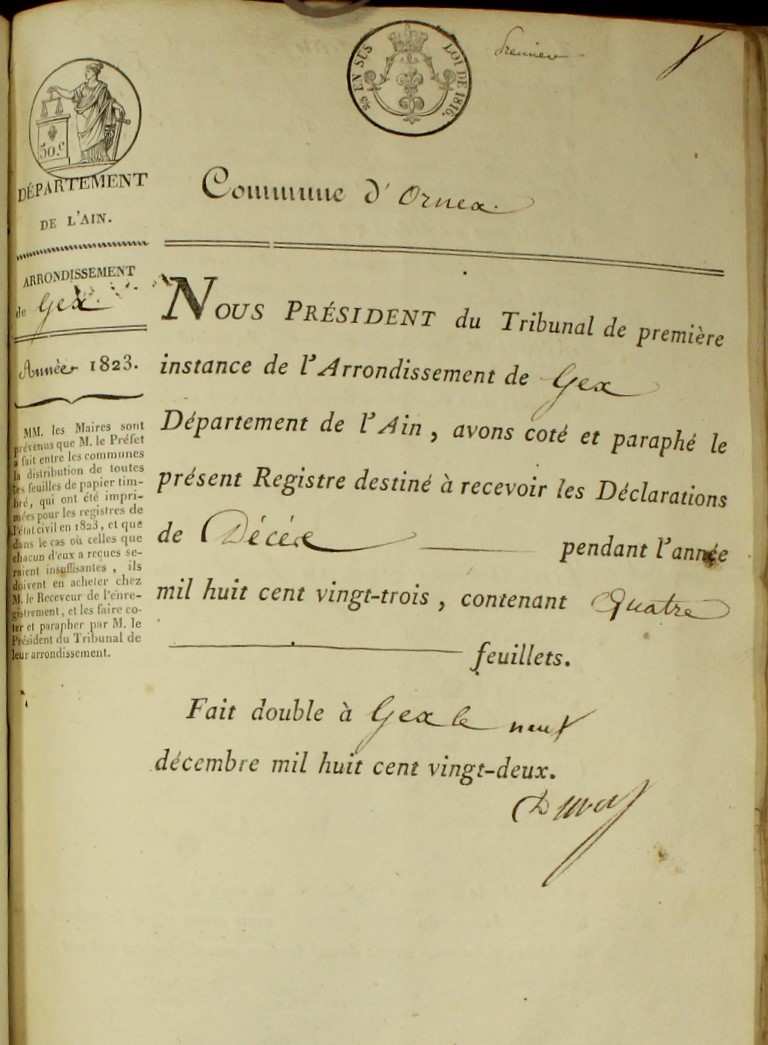 25 EN SUS LOI DE 1816.
Premier
50 c.
DÉPARTEMENT
DE L'AIN.
Commune d'Ornex.
ARRONDISSEMENT
de Gex.
Année 1823.
MM. les Maires sont
prévenus que M. le Préfet
a fait entre les communes
la distribution de toutes
les feuilles de papier tim-
bré, qui ont été impri-
mées pour les registres de
l'état civil en 1823, et que
dans le cas où celles que
chacun d'eux a reçues se-
raient insuffisantes, ils
doivent en acheter chez
M. le Receveur de l'enre-
gistrement, et les faire co-
ter et parapher par M. le
Président du Tribunal de
leur arrondissement.
NOUS PRÉSIDENT du Tribunal de première
instance de l'Arrondissement de Gex
Département de l'Ain, avons coté et paraphé le
présent Registre destiné à recevoir les Déclarations
de Décés pendant l'année
mil huit cent vingt-trois, contenant Quatre
feuillets.
Fait double à Gex le neuf
décembre mil huit cent vingt-deux.